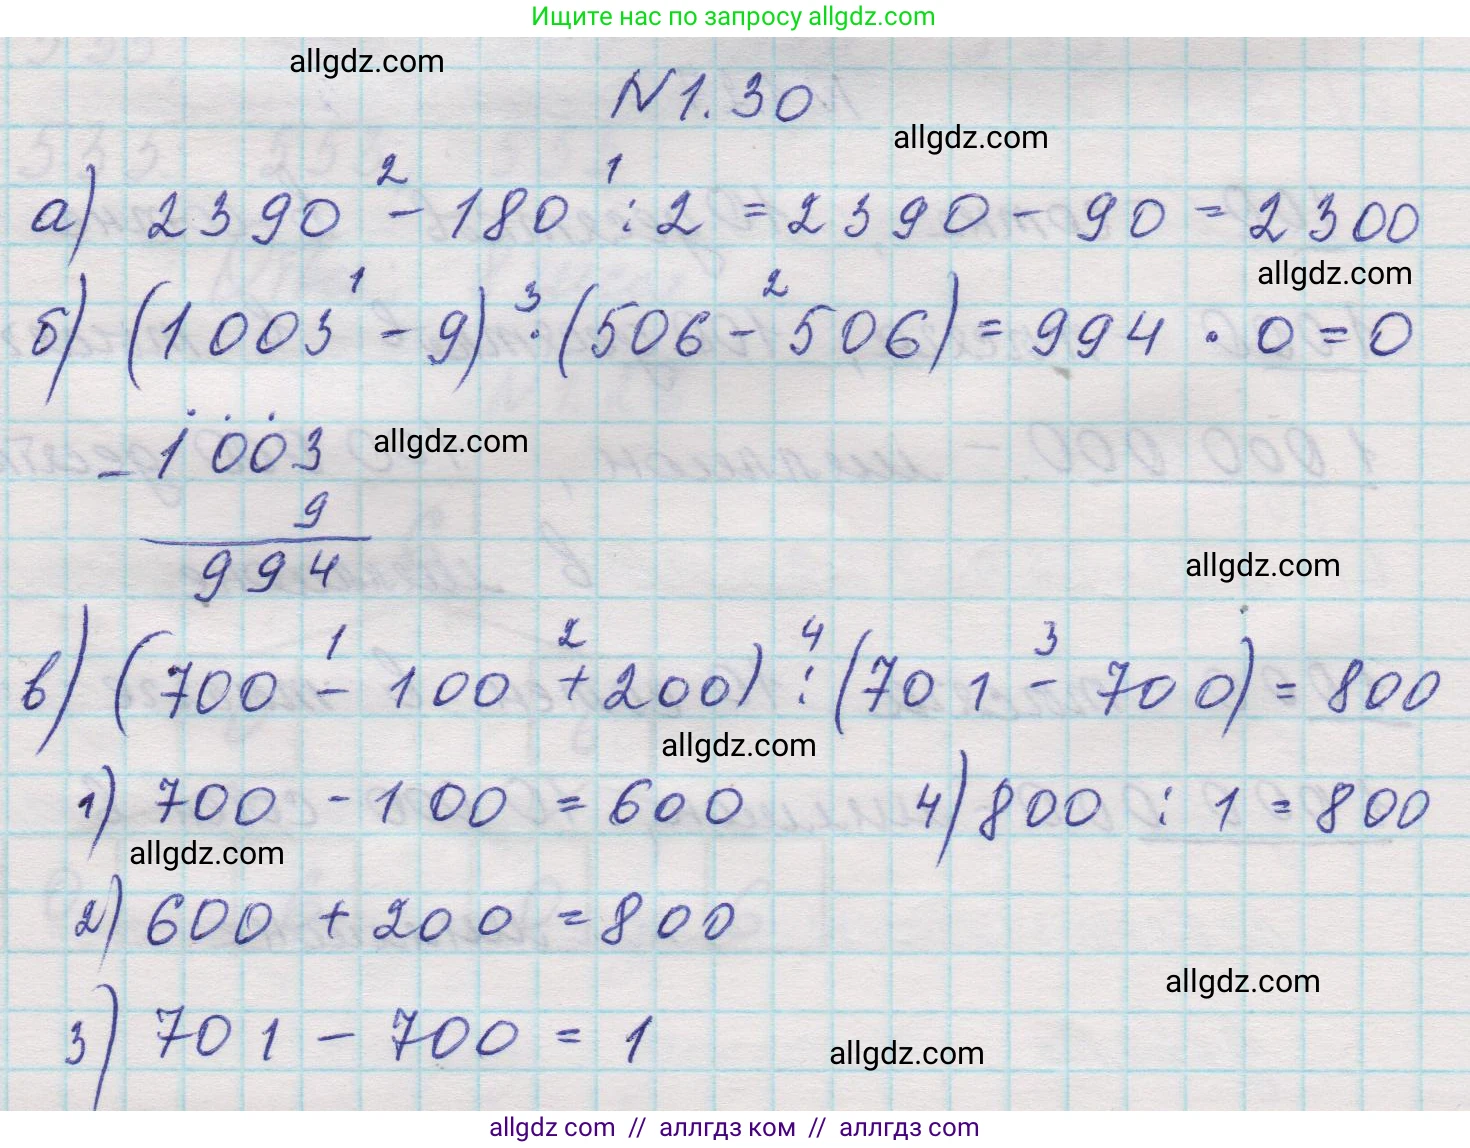 Ищите нас по запросу allgdz.com
allgdz.com
N 1.30
allgdz.com
2 1
а) 2390 - 180 : 2 = 2390 - 90 = 2300
allgdz.com
1 3 2
б) (1003 - 9) · (506 - 506) = 994 · 0 = 0
- 1003
allgdz.com
9
994
allgdz.com
1 2 4 3
в) (700 - 100 + 200) : (701 - 700) = 800
allgdz.com
1) 700 - 100 = 600 4) 800 : 1 = 800
allgdz.com
2) 600 + 200 = 800
allgdz.com
3) 701 - 700 = 1
allgdz.com
allgdz com // аллгдз ком // аллгдз.com